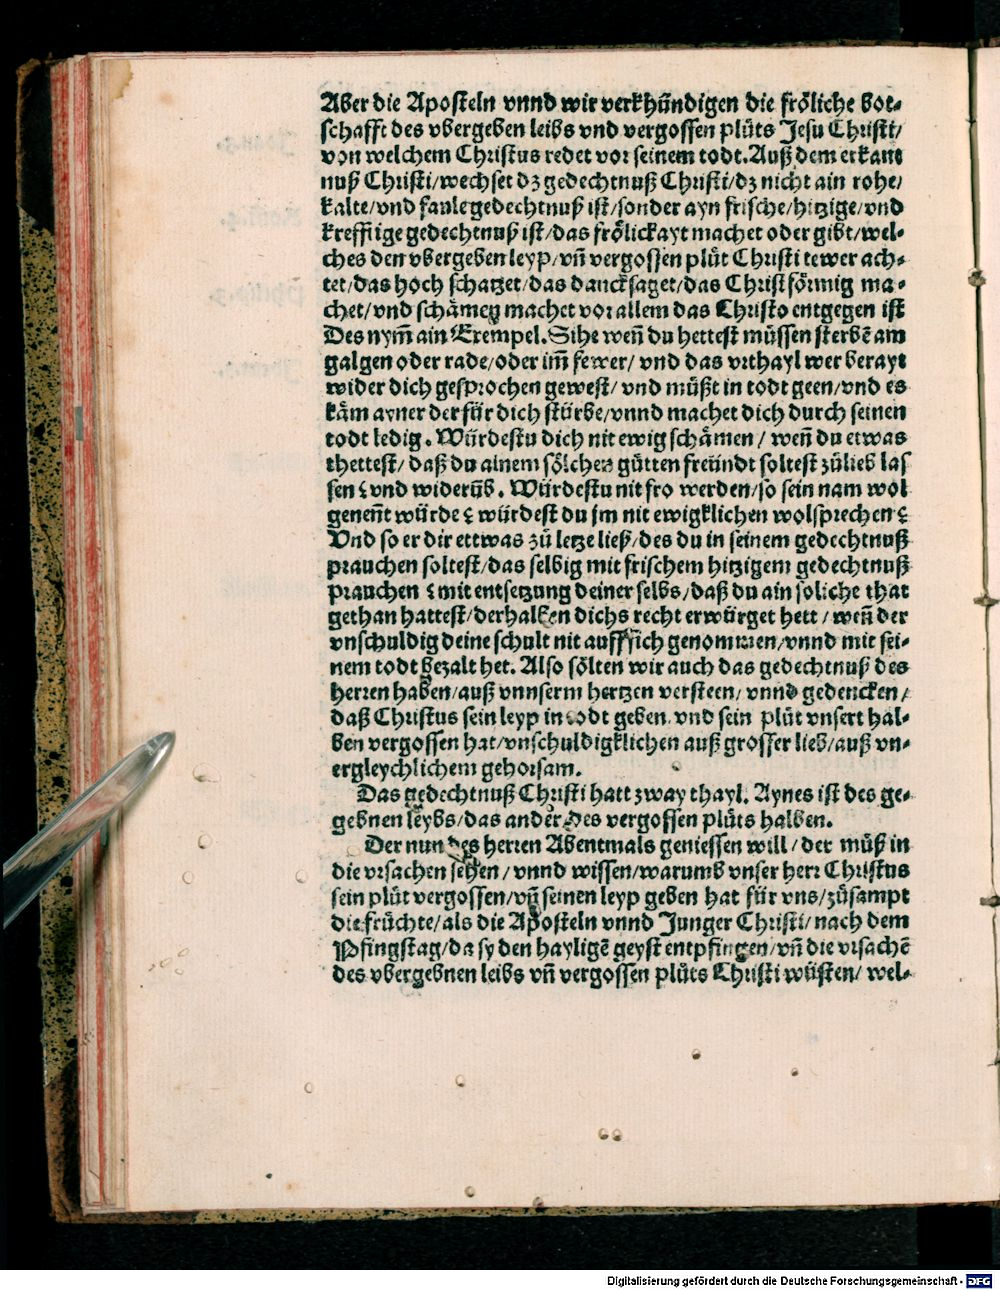 Aber die Aposteln vnnd wir verkhündigen die fröliche bot⸗
schafft des vbergeben leibs vnd vergossen plůts Jesu Christi/
von welchem Christus redet vor seinem todt. Auß dem erkant
nuß Christi/wechset dz gedechtnuß Christi/dz nicht ain rohe/
kalte/vnd faule gedechtnuß ist/sonder ayn frische/hitzige/vnd
krefftige gedechtnuß ist/das frölickayt machet oder gibt/wel⸗
ches den vbergeben leyp/vñ vergossen plůt Christi tewer ach⸗
tet/das hoch schatzet/das dancksaget/das Christförmig ma⸗
chet/vnd schämen machet vor allem das Christo entgegen ist
Des nym̃ ain Exempel. Sihe weñ du hettest müssen sterbẽ am
galgen oder rade/oder im̃ fewer/ vnd das vrthayl wer berayt
wider dich gesprochen gewest/ vnd müßt in todt geen/vnd es
käm ayner der für dich stürbe/vnnd machet dich durch seinen
todt ledig. Würdestu dich nit ewig schämen/ weñ du etwas
thettest/ daß du ainem sölchen gütten freündt soltest zůlieb las
sen? vnd widerüb. Würdestu nit fro werden/so sein nam wol
geneñt würde? würdest du jm nit ewigklichen wolsprechen?
Vnd so er dir ettwas zů letze ließ/des du in seinem gedechtnuß
prauchen soltest/das selbig mit frischem hitzigem gedechtnuß
prauchen? mit entsetzung deiner selbs/daß du ain soliche that
gethan hattest/derhalben dichs recht erwürget hett/ weñ der
vnschuldig deine schult nit auff sich genommen/vnnd mit sei⸗
nem todt bezalt het. Also sölten wir auch das gedechtnuß des
herren haben/auß vnnserm hertzen versteen/ vnnd gedencken/
daß Christus sein leyp in todt geben. vnd sein plůt vnsert hal⸗
ben vergossen hat/vnschuldigklichen auß grosser lieb/auß vn⸗
ergleychlichem gehorsam.
Das gedechtnuß Christi hatt zway thayl. Aynes ist des ge⸗
gebnen leybs/das ander des vergossen plůts halben.
Der nun des herren Abentmals geniessen will/ der můß in
die vrsachen sehen/ vnnd wissen/warumb vnser herr Christus
sein plůt vergossen/vñ seinen leyp geben hat für vns/zůsampt
die früchte/als die Aposteln vnnd Junger Christi/nach dem
Pfingstag/da sy den hayligẽ geyst entpfingen/vñ die vrsachẽ
des vbergebnen leibs vñ vergossen plůts Christi wüsten/ wel⸗
Digitalisierung gefördert durch die Deutsche Forschungsgemeinschaft - DFG